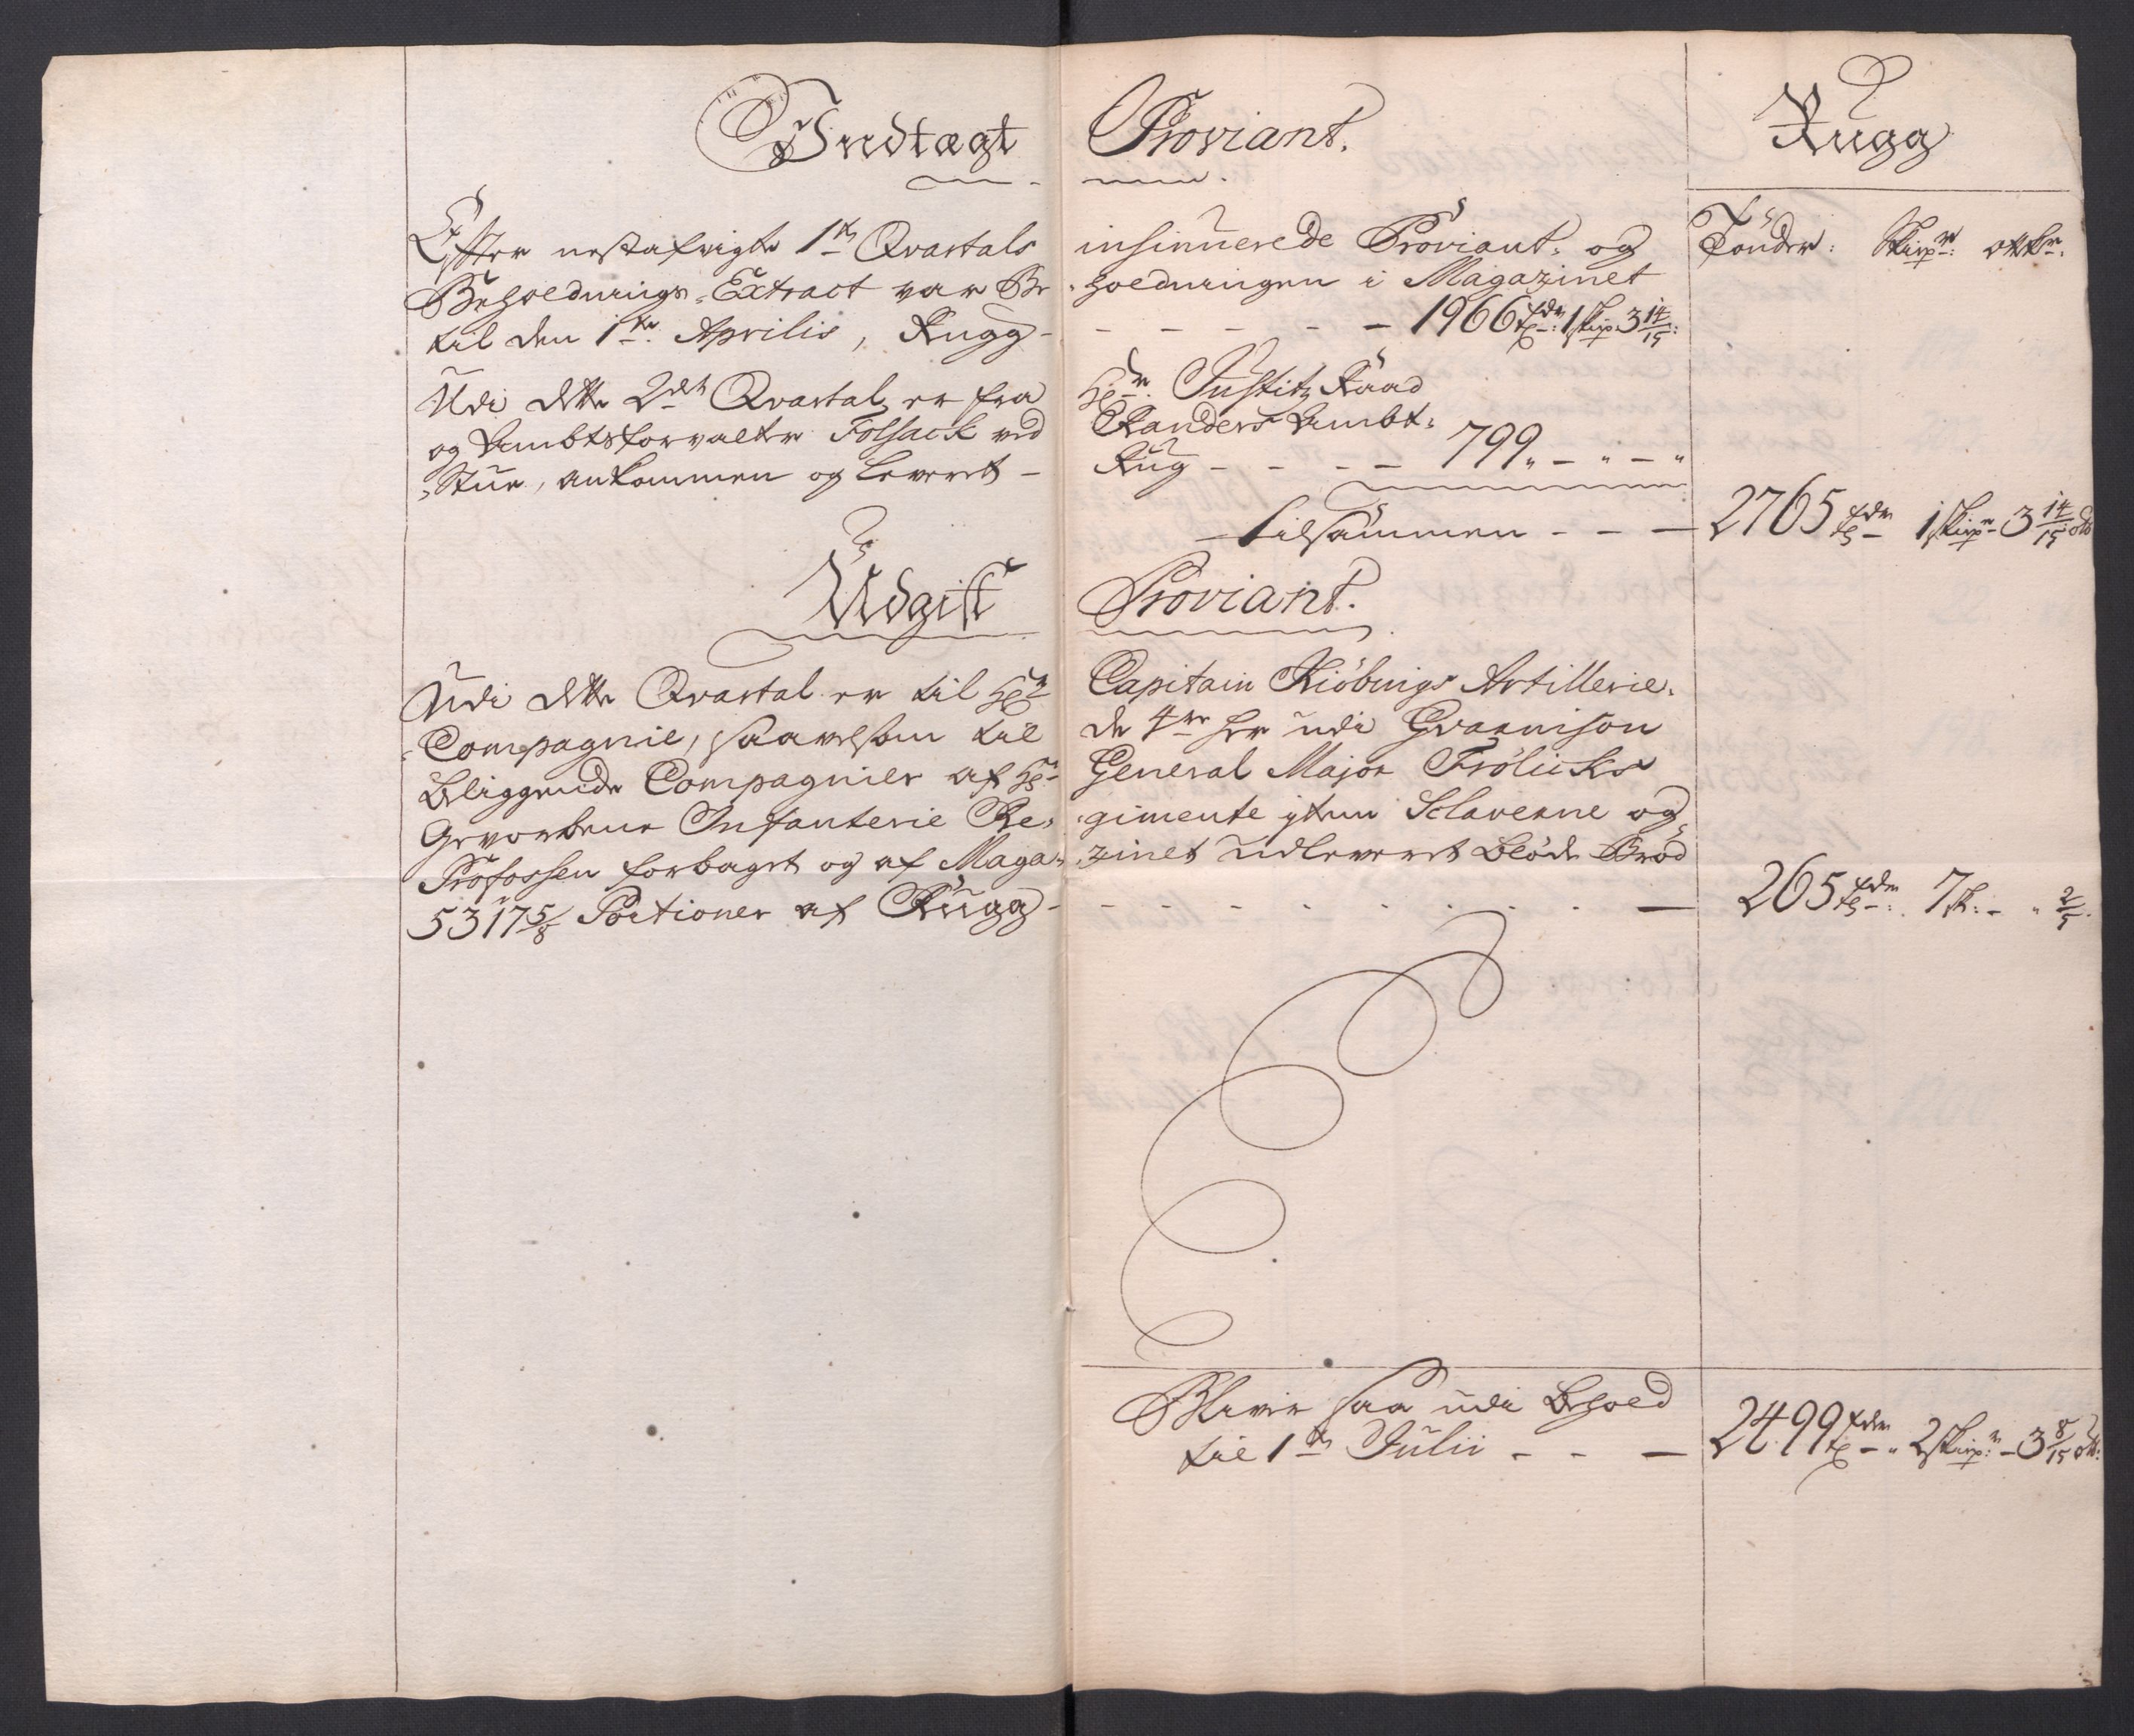 Indtægt Proviant.
Rugg
Effter nestafvigte 1te Qvartals insinuerede Proviant- og
Tönder: Skiepr: ottkr:
Beholdnings-Extract var Beholdningen i Magazinet
til den 1te Aprilis, Rugg - - - - - - 1966 tdr: 1 skip 3 14/15:
Udi dette 2det Qvartal er fra Hr. Justitz Raad
og Ambtsforvalter Folsack ved Randers Ambt-
Stue, ankommen og leveret - Rug - - - - 799 " - " - "
tilsammen - - - 2765 tdr 1 Skiper - 3 14/15 ott
Udgift Proviant.
Udi dette Qvartal er til Hr Capitain Kiöbings Artillerie-
Compagnie, saavelsom til de 4re her udi Gvarnison
beliggende Compagnier af Hr General Major Frölicks
Gevorbene Infanterie Regimente item Sclaverne og
Profossen forbaget og af Magazinet udleveret Blöde Bröd
5317 5/8 Portioner af Rugg - - - - - - - - 265 tdr: 7 sk: - " 2/5.
Bliver saa udi Behold
til 1te Julii - - - 2499 tdr - " 2 Skiep:r - 3 8/15 ott: